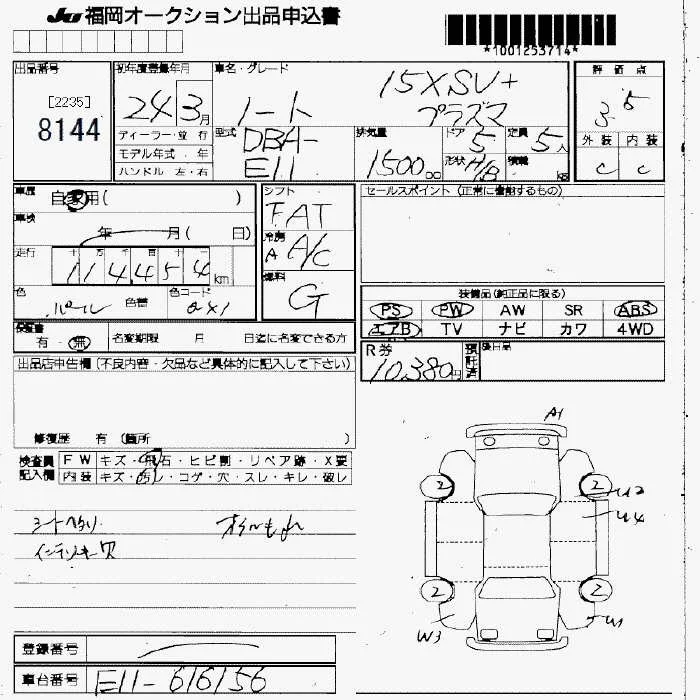 JU 福岡オークション出品申込書
*1001253714*
出品番号
[2235]
8144
初年度登録年月
24年3月
ディーラー・並行
モデル年式 . 年
ハンドル 左・右
車名・グレード
ノート
15X SV+
プラズマ
型式
DBA-
E11
排気量
1500cc
ドア
5
形状 H/B
定員
5人
積載
kg
評価点
3.5
外装 内装
C C
車歴
自家用( )
車検
年 月( 日)
走行
十 万 千 百 十
114454km
色
パール
色替
色コード
QX1
シフト
FAT
冷房
A A/C
燃料
G
セールスポイント (正常に機能するもの)
装備品(純正品に限る)
PS PW AW SR ABS
エアB TV ナビ カワ 4WD
検査書
有・無
名変期限 月 日迄に名変できる方
R券
10,380円
預託済
後日品
出品店申告欄(不良内容・欠品など具体的に記入して下さい)
修復歴 有 (箇所 )
検査員記入欄
FW キズ・飛石・ヒビ割・リペア跡・X要
内装 キズ・汚レ・コゲ・穴・スレ・キレ・破レ
シートヘタリ
オイルもれ
インテリキー欠
A1
2 2
U2
U4
2 2
W3
W1
登録番号
車台番号
E11-616156